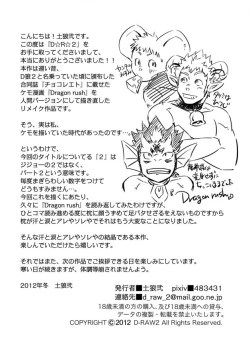 こんにちは!土狼弐です。
この度は『D☆R☆2』を
お手に取ってくださいまして、
本当にありがとうございました!!
本作は遠い昔、
D狼2と名乗っていた頃に頒布した
合同誌『チョコレエト』に載せた
ケモ漫画『Dragon rush』を
人間バージョンにして描き直した
リメイク作品です。
そう、実は私、
ケモを描いていた時代があったのです…
というわけで、
今回のタイトルについてる『2』は
ジジョーの2ではなくて、
パート2という意味です。
毎度まぎらわしい数字をつけて
どうもすみません…。
今回これを描くにあたり、
久々に『Dragon rush』を読み返してみたわけですが、
ひとコマ読み進める度に枕に顔うずめて足バタせざるをえないものですから
枕が汗と涙とアレやソレやらでもう大変なことになりました。
そんな汗と涙とアレやソレやの結晶である本作、
楽しんでいただけたら嬉しいです。
それではまた、次の作品でご挨拶できることを楽しみにしています。
寒い日が続きますが、体調等崩れませんよう。
2012年冬 土狼弐
Dragon rush
発行者■土狼弐 pixiv■483431
連絡先■d_raw_2@mail.goo.ne.jp
18歳未満の方の購入、及び18歳未満への貸与、
データの複製・転載を禁止いたします。
COPYRIGHT ©2012 D-RAW2 All Rights Reserved.